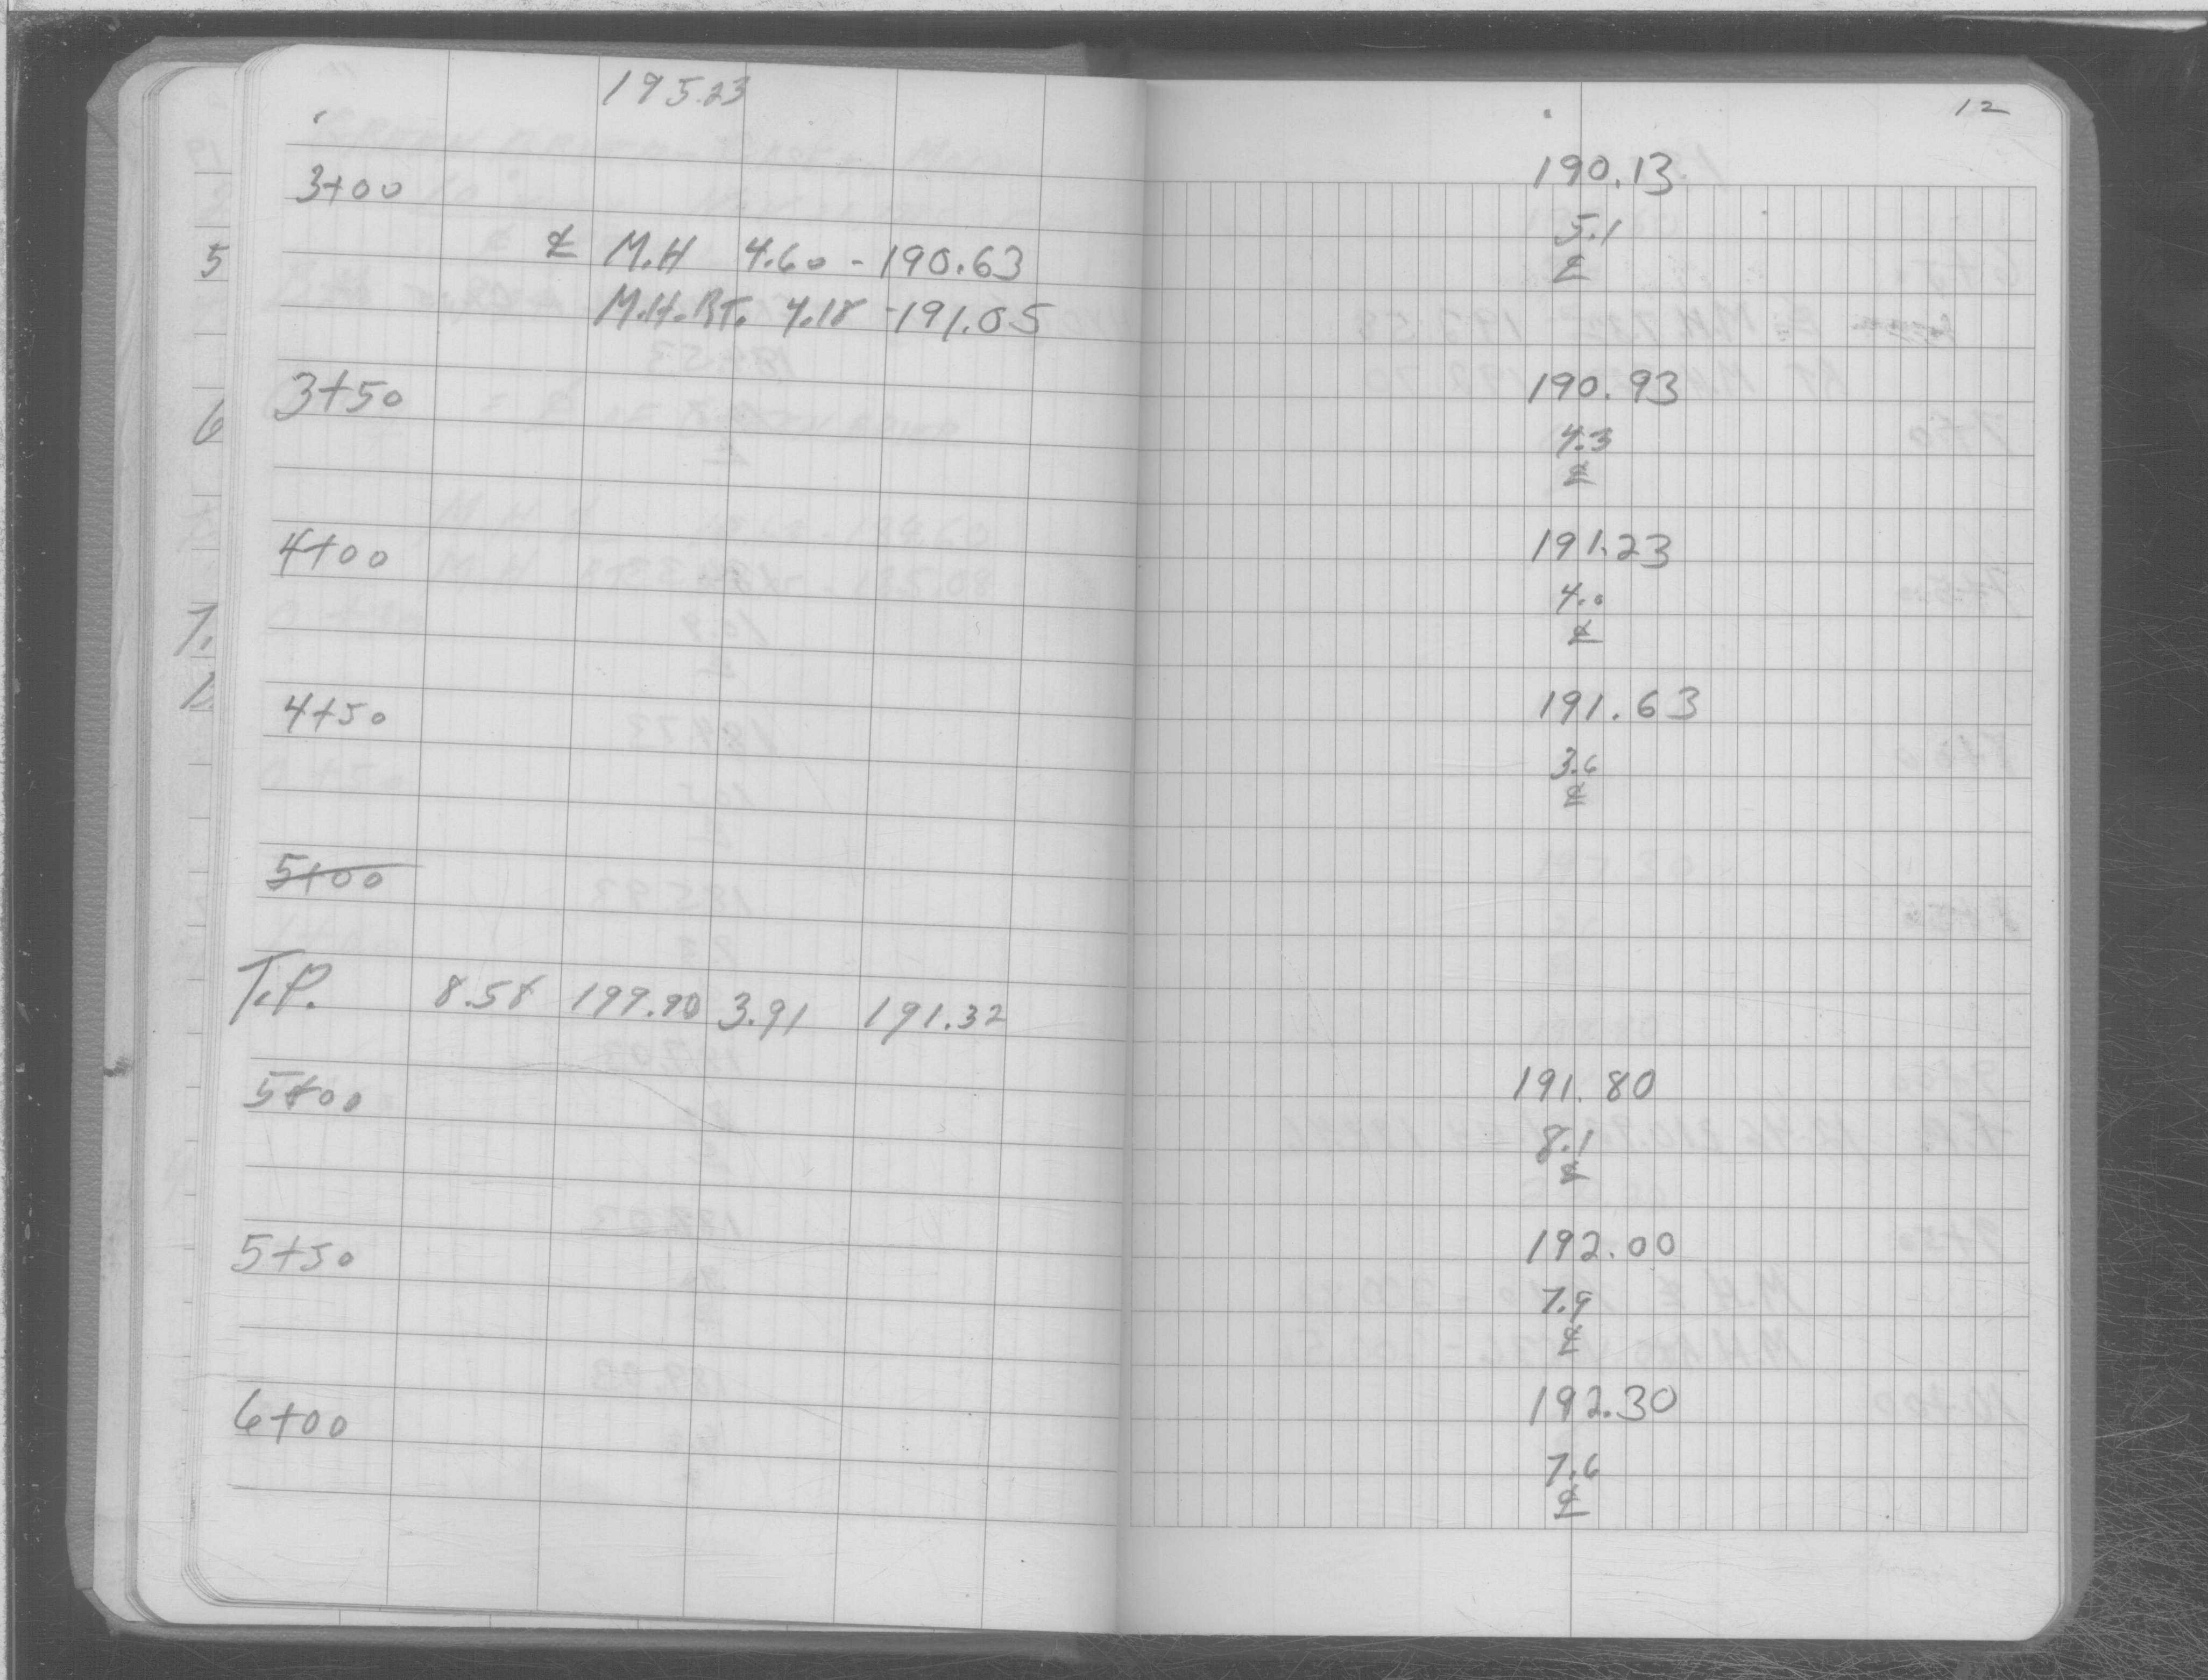 195.23
3+00
℄ M.H 4.60 - 190.63
M.H. RT. 4.18 - 191.05
3+50
4+00
4+50
5+00
T.P. 8.58 199.90 3.91 191.32
5+00
5+50
6+00
5
6
7.
12
190.13
5.1
℄
190.93
4.3
℄
191.23
4.0
℄
191.63
3.6
℄
191.80
8.1
℄
192.00
7.9
℄
192.30
7.6
℄